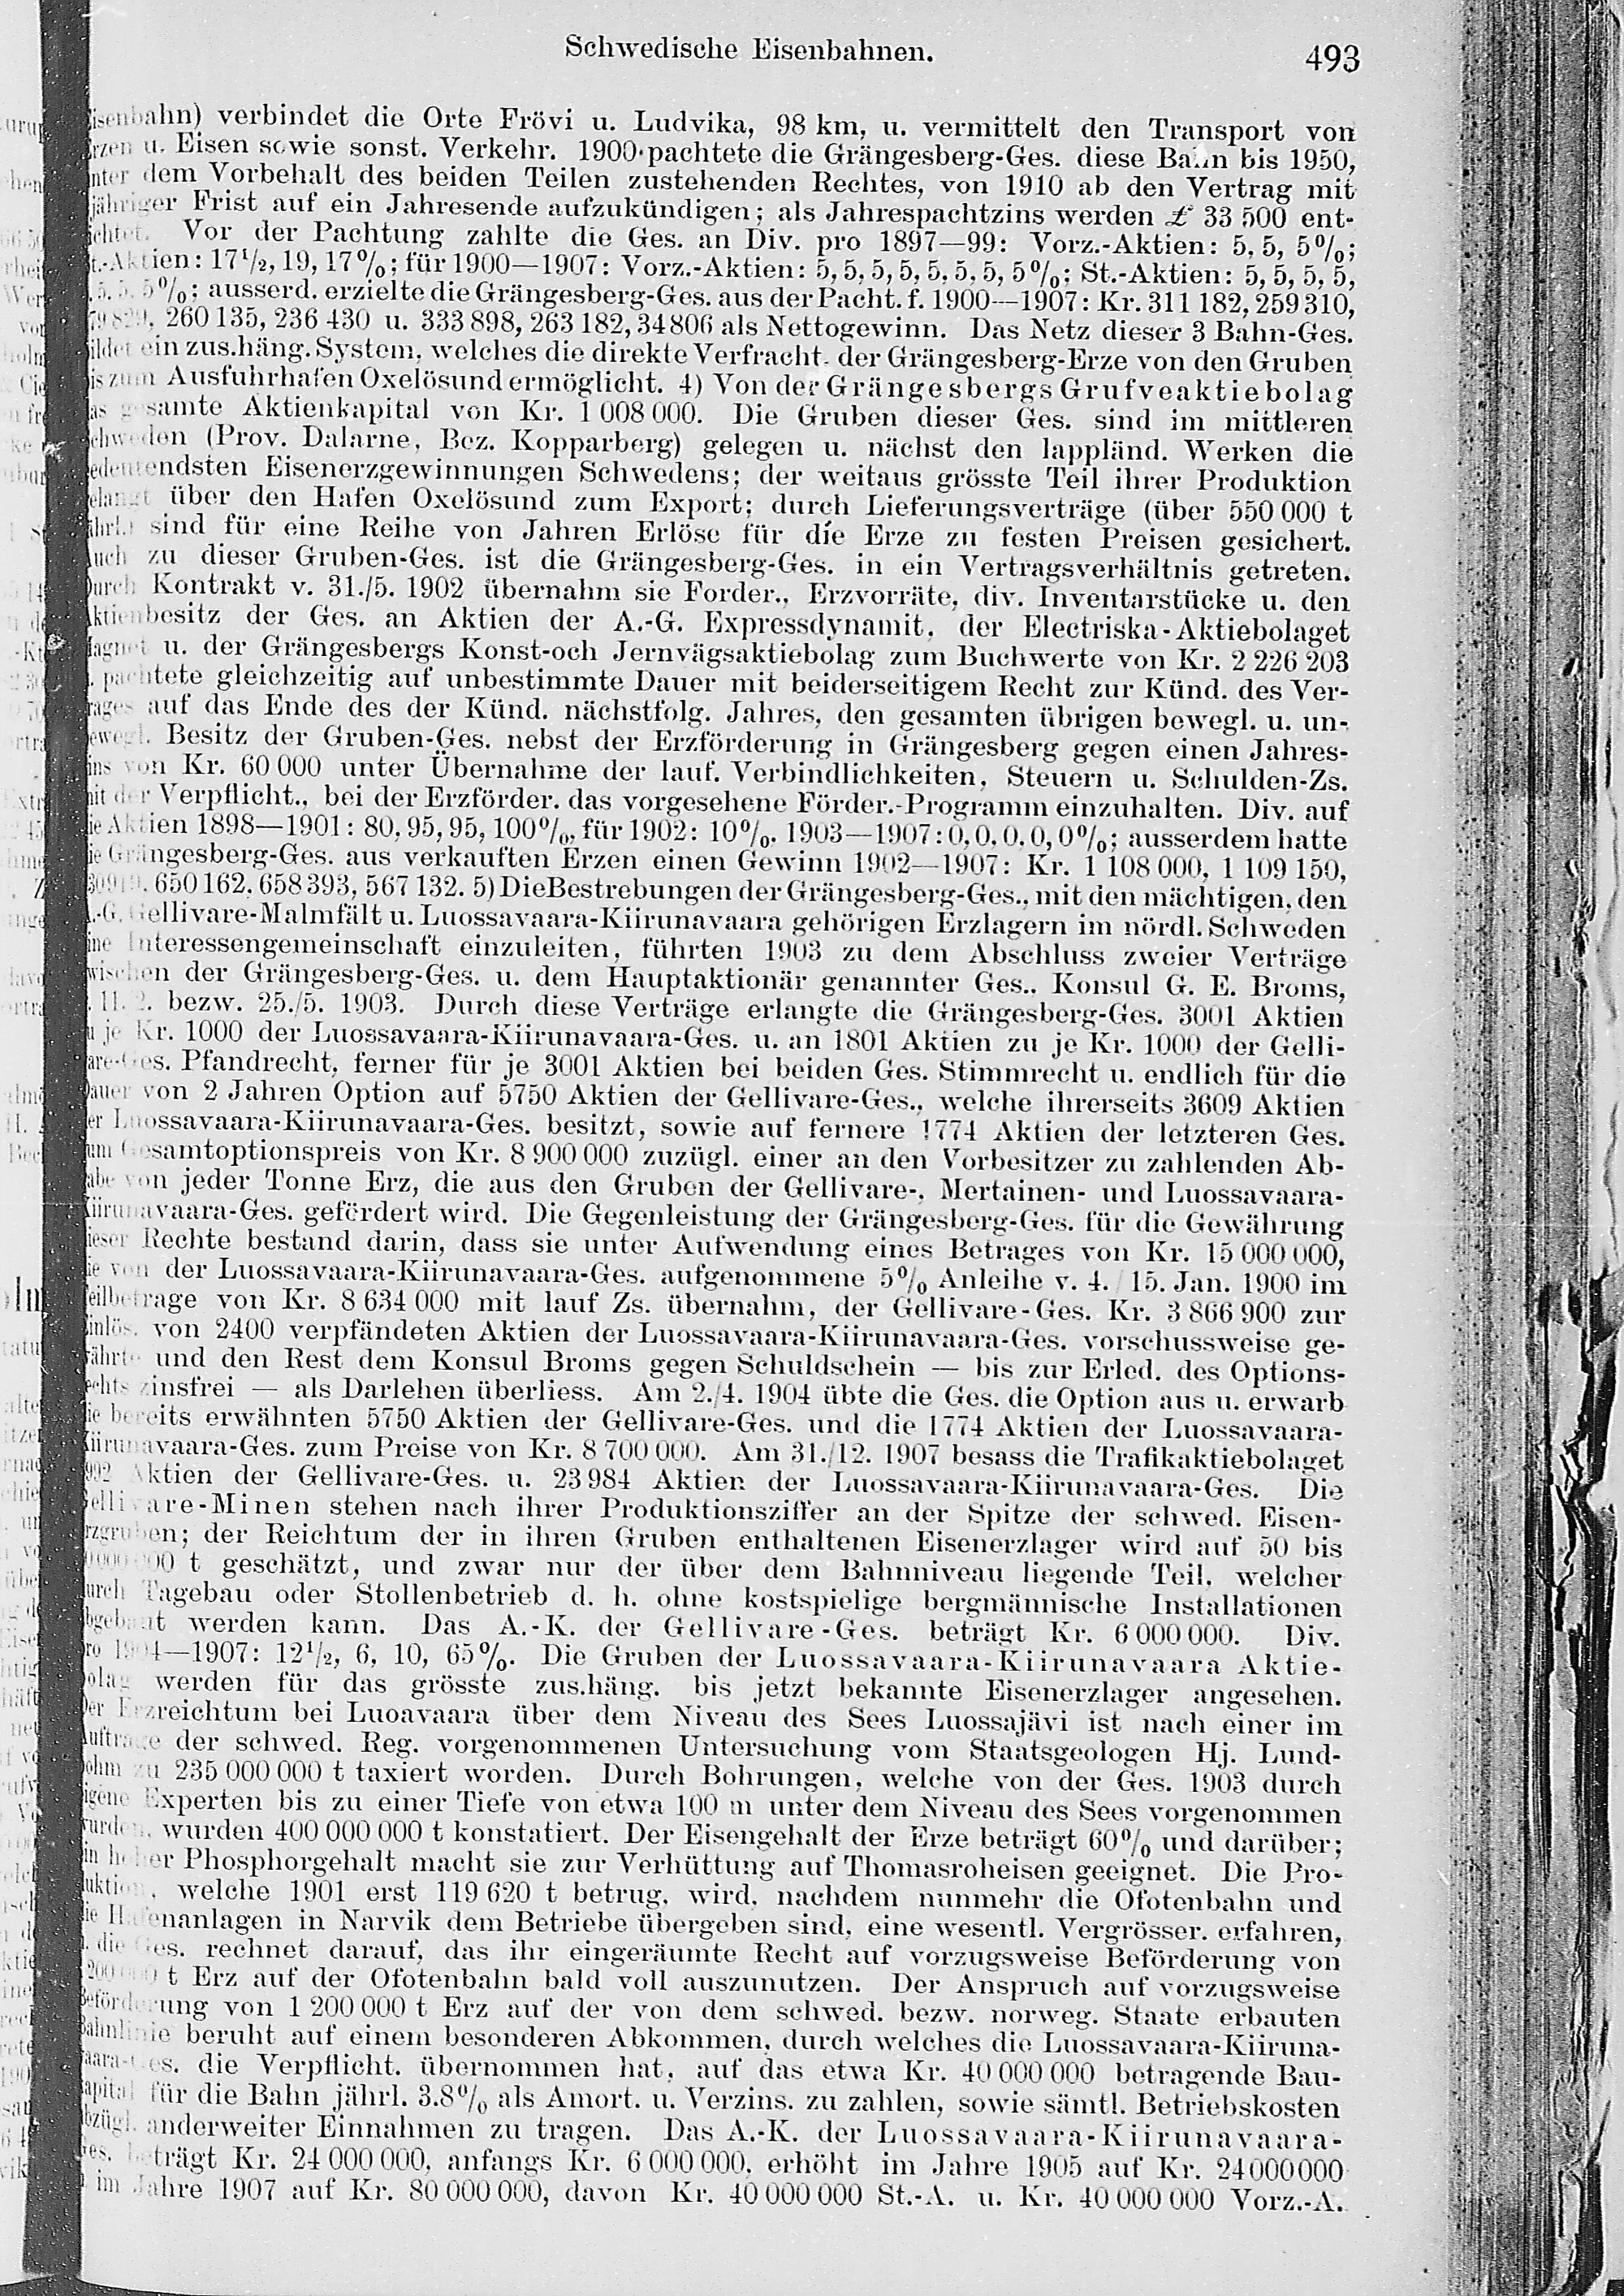 Schwedische Eisenbahnen. 493
isenbahn) verbindet die Orte Frövi u. Ludvika, 98 km, u. vermittelt den Transport von
rzen u. Eisen sowie sonst. Verkehr. 1900 pachtete die Grängesberg-Ges. diese Bahn bis 1950,
nter dem Vorbehalt des beiden Teilen zustehenden Rechtes, von 1910 ab den Vertrag mit
jähriger Frist auf ein Jahresende aufzukündigen; als Jahrespachtzins werden £ 33 500 ent-
ichtet. Vor der Pachtung zahlte die Ges. an Div. pro 1897—99: Vorz.-Aktien: 5, 5, 5%;
t.-Aktien: 17½, 19, 17%; für 1900—1907: Vorz.-Aktien: 5, 5, 5, 5, 5, 5, 5, 5%; St.-Aktien: 5, 5, 5, 5,
5, 5, 5%; ausserd. erzielte die Grängesberg-Ges. aus der Pacht. f. 1900—1907: Kr. 311 182, 259 310,
79 829, 260 135, 236 430 u. 333 898, 263 182, 34 806 als Nettogewinn. Das Netz dieser 3 Bahn-Ges.
ildet ein zus.häng. System, welches die direkte Verfracht. der Grängesberg-Erze von den Gruben
is zum Ausfuhrhafen Oxelösund ermöglicht. 4) Von der Grängesbergs Grufveaktiebolag
as gesamte Aktienkapital von Kr. 1 008 000. Die Gruben dieser Ges. sind im mittleren
chweden (Prov. Dalarne, Bez. Kopparberg) gelegen u. nächst den lappländ. Werken die
edeutendsten Eisenerzgewinnungen Schwedens; der weitaus grösste Teil ihrer Produktion
elangt über den Hafen Oxelösund zum Export; durch Lieferungsverträge (über 550 000 t
ährl.) sind für eine Reihe von Jahren Erlöse für die Erze zu festen Preisen gesichert.
uch zu dieser Gruben-Ges. ist die Grängesberg-Ges. in ein Vertragsverhältnis getreten.
urch Kontrakt v. 31./5. 1902 übernahm sie Forder., Erzvorräte, div. Inventarstücke u. den
ktienbesitz der Ges. an Aktien der A.-G. Expressdynamit, der Electriska-Aktiebolaget
agnet u. der Grängesbergs Konst-och Jernvägsaktiebolag zum Buchwerte von Kr. 2 226 203
. pachtete gleichzeitig auf unbestimmte Dauer mit beiderseitigem Recht zur Künd. des Ver-
rages auf das Ende des der Künd. nächstfolg. Jahres, den gesamten übrigen bewegl. u. un-
ewegl. Besitz der Gruben-Ges. nebst der Erzförderung in Grängesberg gegen einen Jahres-
ins von Kr. 60 000 unter Übernahme der lauf. Verbindlichkeiten, Steuern u. Schulden-Zs.
it der Verpflicht., bei der Erzförder. das vorgesehene Förder.-Programm einzuhalten. Div. auf
ie Aktien 1898—1901: 80, 95, 95, 100%, für 1902: 10%, 1903—1907: 0, 0, 0, 0, 0%; ausserdem hatte
ie Grängesberg-Ges. aus verkauften Erzen einen Gewinn 1902—1907: Kr. 1 108 000, 1 109 150,
650 162, 658 393, 567 132. 5) Die Bestrebungen der Grängesberg-Ges., mit den mächtigen, den
.-G. Gellivare-Malmfält u. Luossavaara-Kiirunavaara gehörigen Erzlagern im nördl. Schweden
ine Interessengemeinschaft einzuleiten, führten 1903 zu dem Abschluss zweier Verträge
wischen der Grängesberg-Ges. u. dem Hauptaktionär genannter Ges., Konsul G. E. Broms,
. 11./2. bezw. 25./5. 1903. Durch diese Verträge erlangte die Grängesberg-Ges. 3001 Aktien
u je Kr. 1000 der Luossavaara-Kiirunavaara-Ges. u. an 1801 Aktien zu je Kr. 1000 der Gelli-
are-Ges. Pfandrecht, ferner für je 3001 Aktien bei beiden Ges. Stimmrecht u. endlich für die
auer von 2 Jahren Option auf 5750 Aktien der Gellivare-Ges., welche ihrerseits 3609 Aktien
er Luossavaara-Kiirunavaara-Ges. besitzt, sowie auf fernere 1774 Aktien der letzteren Ges.
um Gesamtoptionspreis von Kr. 8 900 000 zuzügl. einer an den Vorbesitzer zu zahlenden Ab-
abe von jeder Tonne Erz, die aus den Gruben der Gellivare-, Mertainen- und Luossavaara-
iirunavaara-Ges. gefördert wird. Die Gegenleistung der Grängesberg-Ges. für die Gewährung
ieser Rechte bestand darin, dass sie unter Aufwendung eines Betrages von Kr. 15 000 000,
ie von der Luossavaara-Kiirunavaara-Ges. aufgenommene 5% Anleihe v. 4./15. Jan. 1900 im
eilbetrage von Kr. 8 634 000 mit lauf Zs. übernahm, der Gellivare-Ges. Kr. 3 866 900 zur
inlös. von 2400 verpfändeten Aktien der Luossavaara-Kiirunavaara-Ges. vorschussweise ge-
ährte und den Rest dem Konsul Broms gegen Schuldschein — bis zur Erled. des Options-
echts zinsfrei — als Darlehen überliess. Am 2./4. 1904 übte die Ges. die Option aus u. erwarb
ie bereits erwähnten 5750 Aktien der Gellivare-Ges. und die 1774 Aktien der Luossavaara-
iirunavaara-Ges. zum Preise von Kr. 8 700 000. Am 31./12. 1907 besass die Trafikaktiebolaget
992 Aktien der Gellivare-Ges. u. 23 984 Aktien der Luossavaara-Kiirunavaara-Ges. Die
ellivare-Minen stehen nach ihrer Produktionsziffer an der Spitze der schwed. Eisen-
rzgruben; der Reichtum der in ihren Gruben enthaltenen Eisenerzlager wird auf 50 bis
t geschätzt, und zwar nur der über dem Bahnniveau liegende Teil, welcher
urch Tagebau oder Stollenbetrieb d. h. ohne kostspielige bergmännische Installationen
bgebaut werden kann. Das A.-K. der Gellivare-Ges. beträgt Kr. 6 000 000. Div.
ro 1904—1907: 12½, 6, 10, 65%. Die Gruben der Luossavaara-Kiirunavaara Aktie-
olag werden für das grösste zus.häng. bis jetzt bekannte Eisenerzlager angesehen.
er Erzreichtum bei Luoavaara über dem Niveau des Sees Luossajävi ist nach einer im
uftrage der schwed. Reg. vorgenommenen Untersuchung vom Staatsgeologen Hj. Lund-
ohm zu 235 000 000 t taxiert worden. Durch Bohrungen, welche von der Ges. 1903 durch
igene Experten bis zu einer Tiefe von etwa 100 m unter dem Niveau des Sees vorgenommen
urden, wurden 400 000 000 t konstatiert. Der Eisengehalt der Erze beträgt 60% und darüber;
in hoher Phosphorgehalt macht sie zur Verhüttung auf Thomasroheisen geeignet. Die Pro-
uktion, welche 1901 erst 119 620 t betrug, wird, nachdem nunmehr die Ofotenbahn und
ie Hafenanlagen in Narvik dem Betriebe übergeben sind, eine wesentl. Vergrösser. erfahren,
. die Ges. rechnet darauf, das ihr eingeräumte Recht auf vorzugsweise Beförderung von
t Erz auf der Ofotenbahn bald voll auszunutzen. Der Anspruch auf vorzugsweise
eförderung von 1 200 000 t Erz auf der von dem schwed. bezw. norweg. Staate erbauten
ahnlinie beruht auf einem besonderen Abkommen, durch welches die Luossavaara-Kiiruna-
aara-Ges. die Verpflicht. übernommen hat, auf das etwa Kr. 40 000 000 betragende Bau-
apital für die Bahn jährl. 3.8% als Amort. u. Verzins. zu zahlen, sowie sämtl. Betriebskosten
bzügl. anderweiter Einnahmen zu tragen. Das A.-K. der Luossavaara-Kiirunavaara-
es. beträgt Kr. 24 000 000, anfangs Kr. 6 000 000, erhöht im Jahre 1905 auf Kr. 24 000 000
im Jahre 1907 auf Kr. 80 000 000, davon Kr. 40 000 000 St.-A. u. Kr. 40 000 000 Vorz.-A.